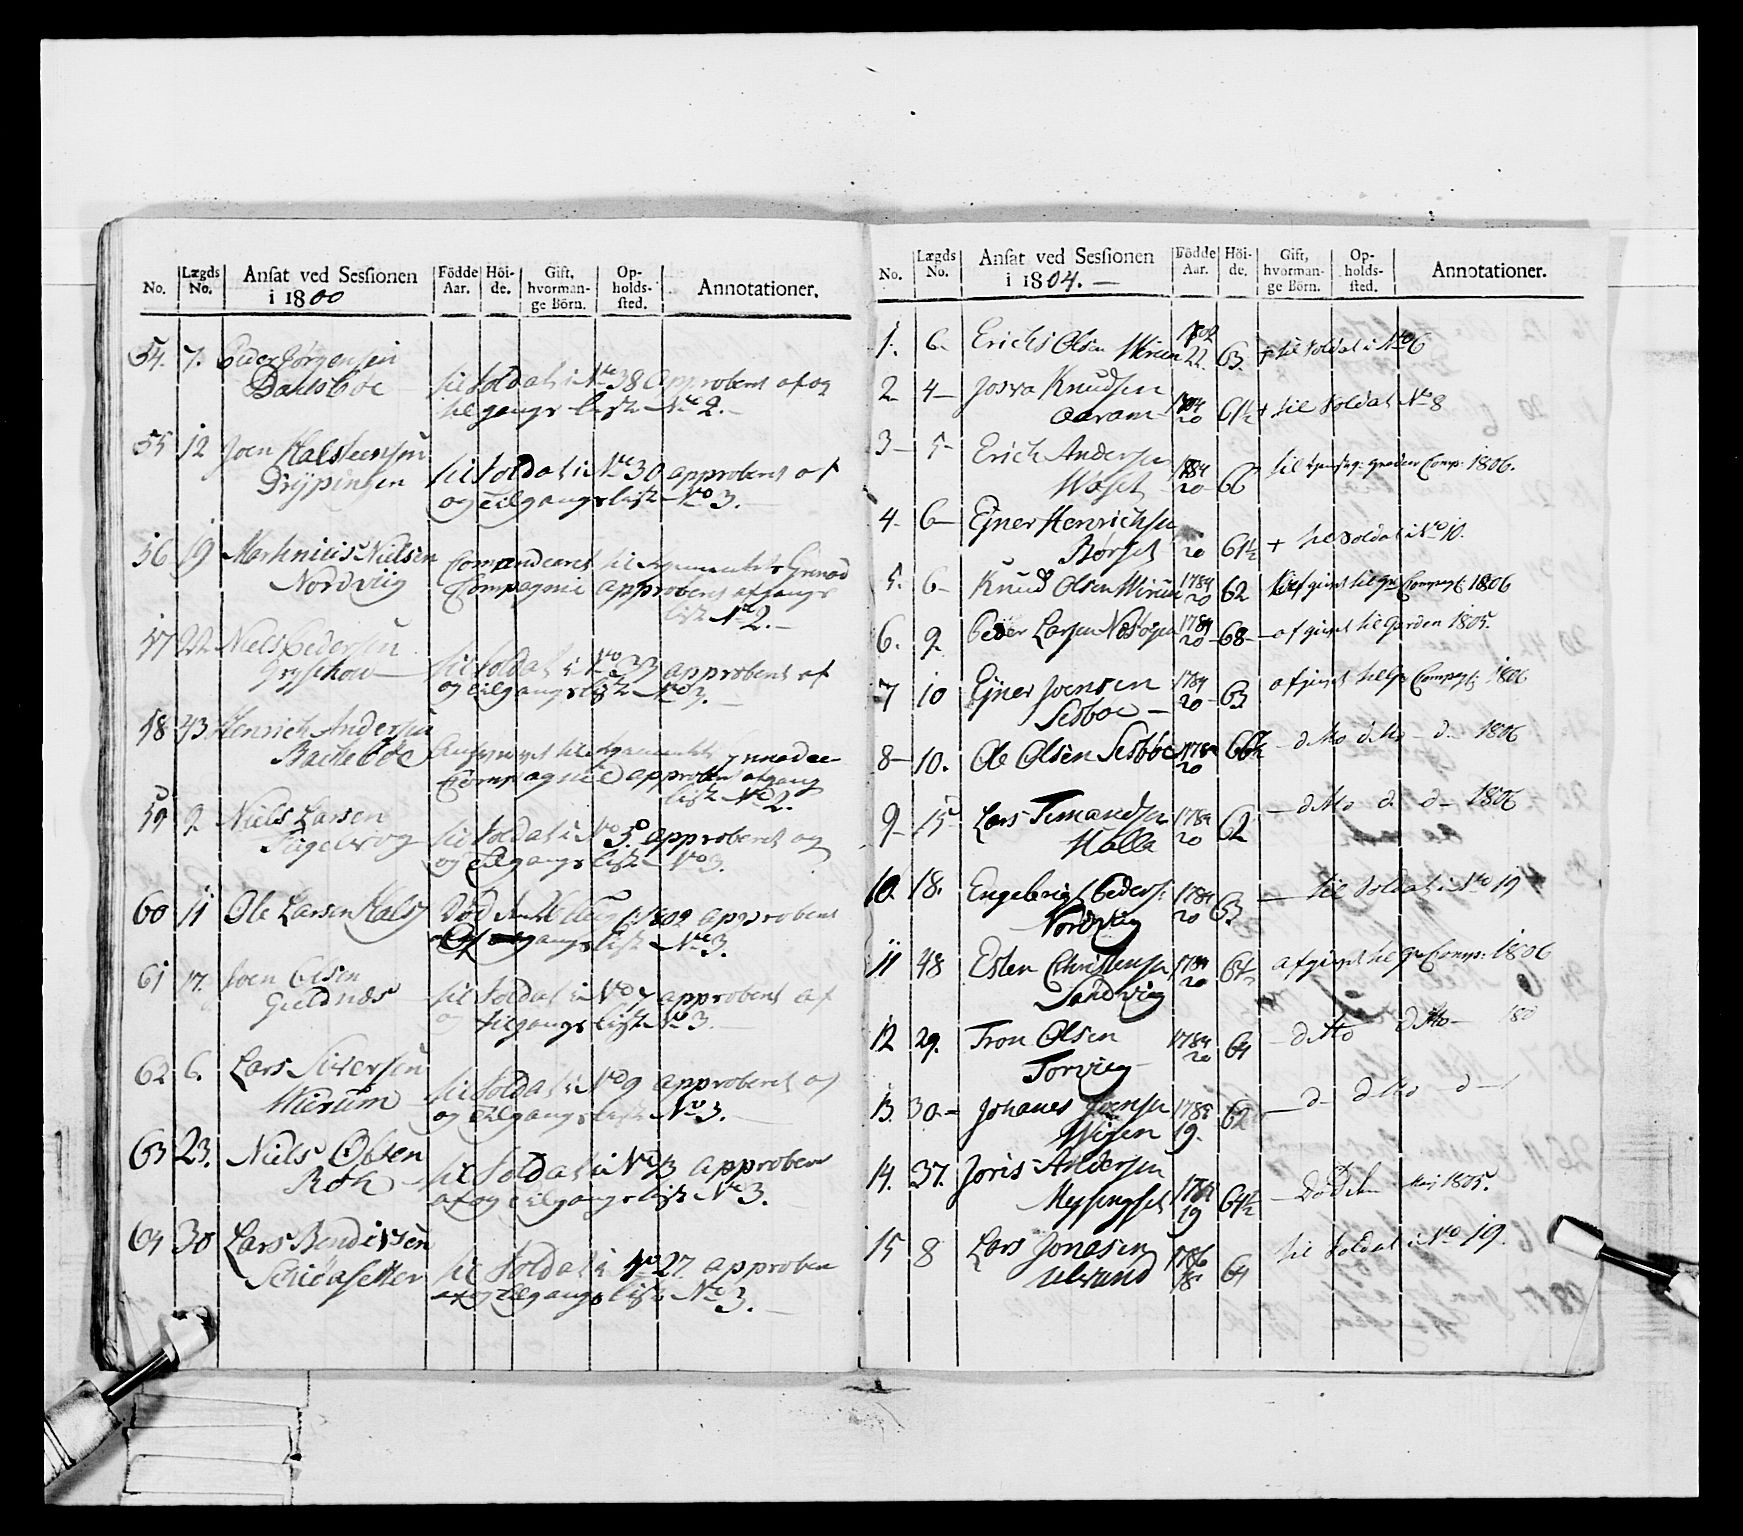 No. Lægds No. Ansat ved Sessionen i 1800 Födde Aar. Höi-de. Gift, hvorman-ge Börn. Op-holds-sted. Annotationer.
54. 7. Peder Jørgensen
Bachsboe til Soldat i No 38 approberet af og
tilgangs liste No 2.
55 12 Joen Halsteensen
til Soldat i No 30 approberet af
og tilgangs liste No 3.
56 19 Marthniùs Nielsen
Nordviig Commanderet til Regimentets Grenad
Compagnie approberet afgangs
liste No 2.
57 22 Niels Pedersen
til Soldat i No 33 approberet af
og tilgangsliste No 3.
58 43 Henrich Andersen
Bacheboe til Regimentets Grenadeer
Compagnie approberet afgang
liste No 2.
59 2 Niels Larsen
til Soldat i No 50 approberet og
og tilgangs liste No 3.
60 11 Ole Larsen Halss Død 1802 approberet
gangs liste No 3.
61 17. Joen Olsen
Guldnæs til Soldat i No 7 approberet af
og tilgangs liste No 3.
62 6. Lars Siversen
Mierùm til Soldat i No 9 approberet af
og tilgangs liste No 3.
63 23. Niels Olsen
Røh til Soldat i No 13 approberet
af og tilgangs liste No 3.
64 30 Lars Bendixsen
til Soldat i No 27 approberet
af og tilgangs liste No 3.
No. Lægds No. Ansat ved Sessionen i 1804. Födde Aar. Höi-de. Gift, hvorman-ge Börn. Op-holds-sted. Annotationer.
1. 6. Erich Olsen Mirùm 22. 63. + til Soldat i No 6
2 4 Josva Knudsen
Aaram 20 61½ + til Soldat No 8
3 5 Erich Andersen 1784
20 66 til Comp: 1806.
4. 6 Ejner Henrichsen
Børset 20 61½ + til Soldat i No 10.
5. 6 Knud Olsen Mirùm 1784
20 62 afgivet til Gr: Compagt: 1806
6. 9 Peder Larsen 1784
20 68 afgivet til Garden 1805.
7 10 Ejner Joensen 1784
Sisboe 20 63 afgivet til Gr Compagt: 1806
8 10. Ole Olsen Sisboe 1784
20 66½ ditto ditto d 1806
9 15 Lars
Halle 1784
20 62 ditto d d 1806
10. 18. Engebrigt Peders: 1784
Nordviig 20 63 til Soldat i No 19
11 48 Esten Christensen 1784
Sandviig 20 64½ afgivet til Gr Comp: 1806
12 29. Tron Olsen 1784
Torviig 20 64 ditto ditto 180
13. 30 Johanes Joensen 1785
19. 62 d ditto d
14. 37. Joris Andersen
Messingset 1785
19 64½ Død den Maj 1805.
15 8 Lars Jonasen 1786
Ulvund 18 64 til Soldat i No 19.